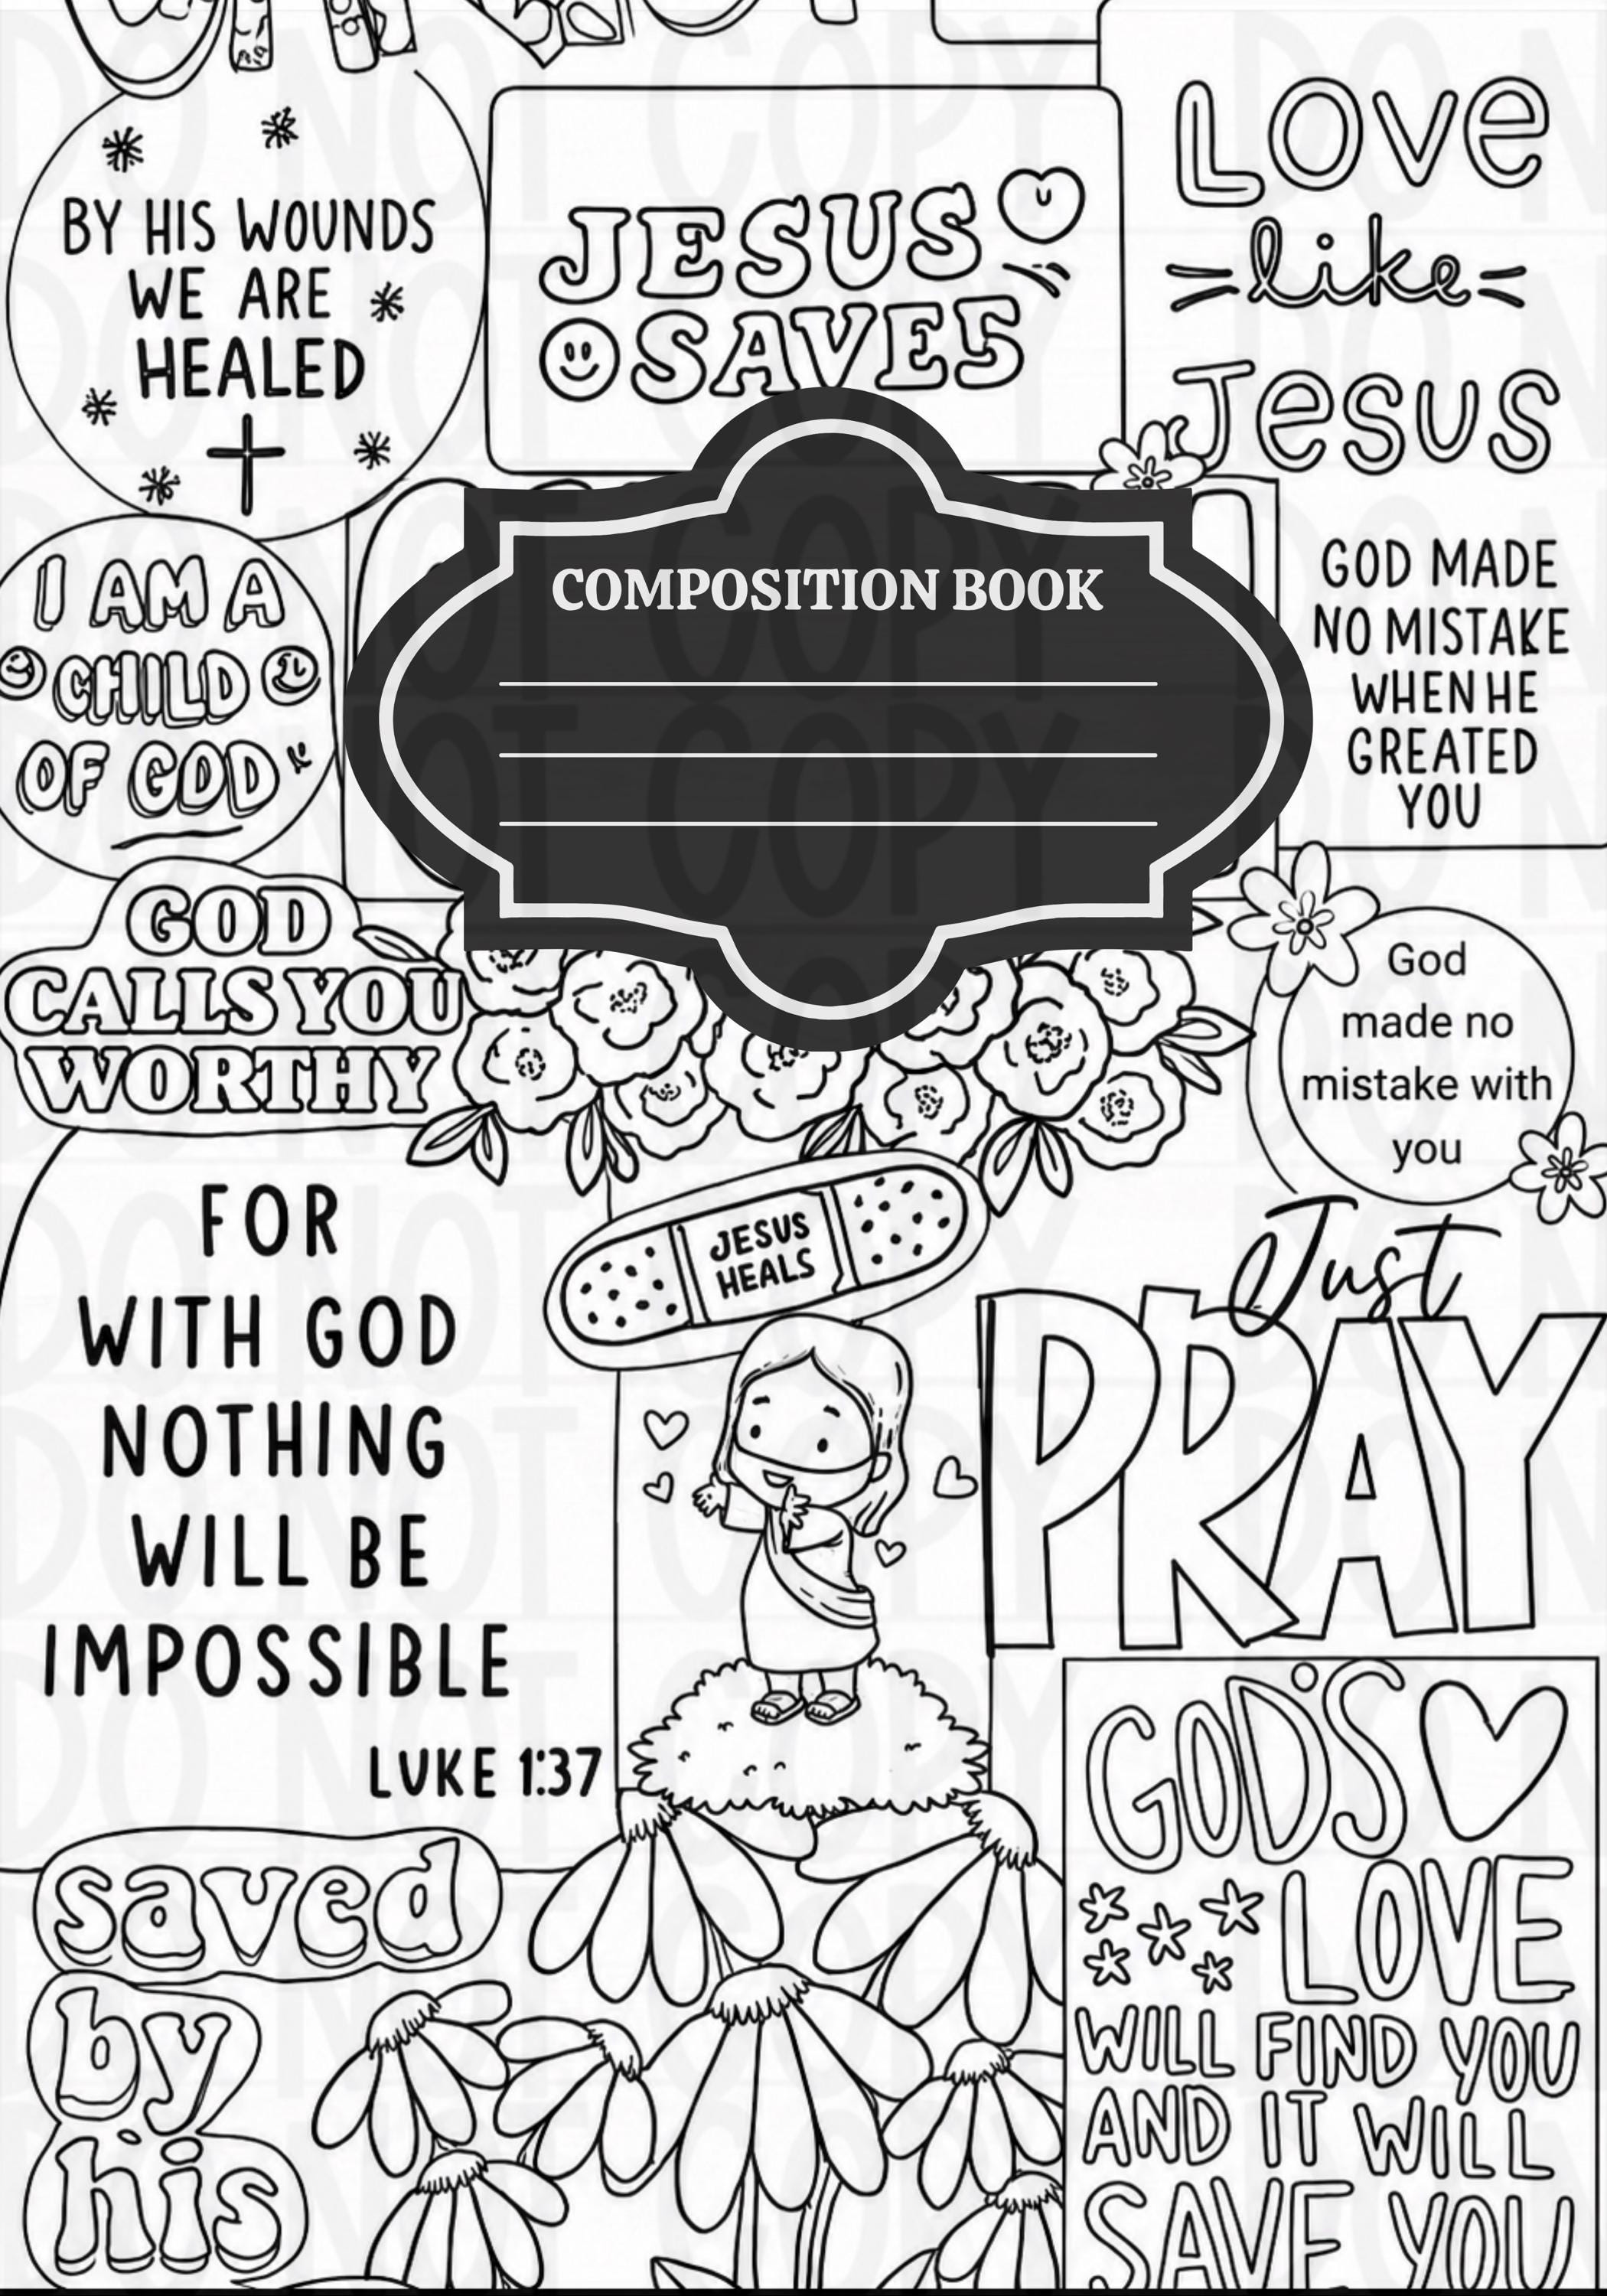 BY HIS WOUNDS
WE ARE
HEALED
JESUS
SAVES
LOVE
like
Jesus
I AM A
CHILD
OF GOD
COMPOSITION BOOK
GOD MADE
NO MISTAKE
WHEN HE
GREATED
YOU
GOD
CALLS YOU
WORTHY
God
made no
mistake with
you
FOR
WITH GOD
NOTHING
WILL BE
IMPOSSIBLE
LUKE 1:37
JESUS
HEALS
Just
PRAY
GOD'S
LOVE
WILL FIND YOU
AND IT WILL
SAVE YOU
saved
by
his
DO NOT COPY